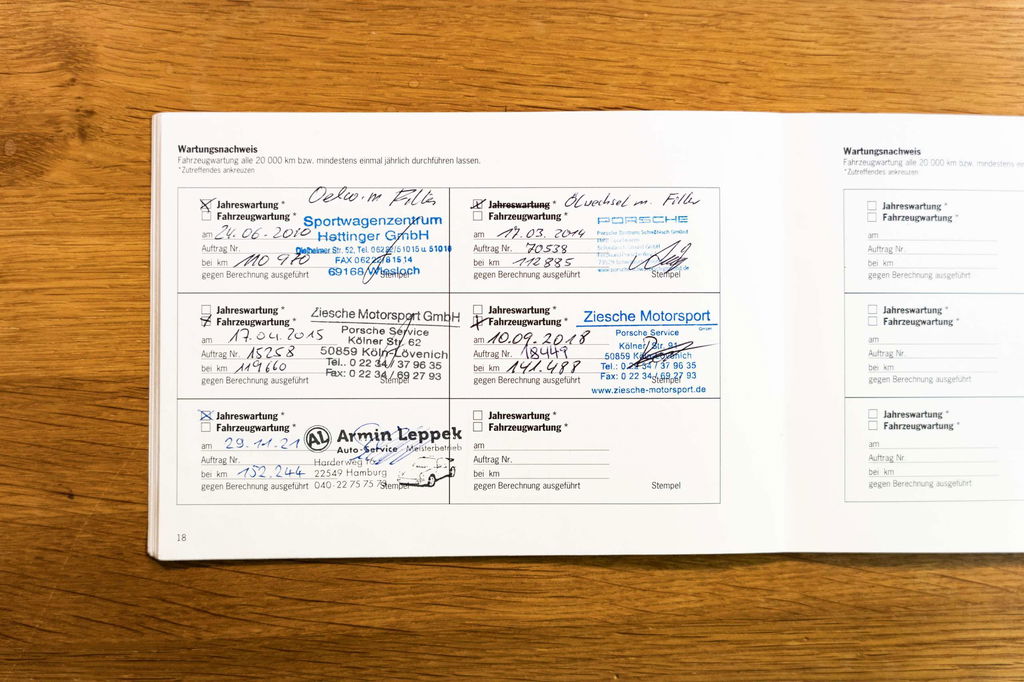 Wartungsnachweis
Fahrzeugwartung alle 20 000 km bzw. mindestens einmal jährlich durchführen lassen.
*Zutreffendes ankreuzen
Oelw. m Filter
Jahreswartung *
Fahrzeugwartung *
am 24.06.2010
Auftrag Nr.
bei km 110 970
gegen Berechnung ausgeführt
Sportwagenzentrum
Hettinger GmbH
FAX
69168 Wiesloch
Stempel
Ölwechsel m. Filter
Jahreswartung *
Fahrzeugwartung *
am 17.03.2014
Auftrag Nr. 70538
bei km 112885
gegen Berechnung ausgeführt
PORSCHE
Stempel
Jahreswartung *
Fahrzeugwartung *
am 17.04.2015
Auftrag Nr. 15258
bei km 119660
gegen Berechnung ausgeführt
Ziesche Motorsport GmbH
Porsche Service
Kölner Str. 62
50859 Köln-Lövenich
Tel.: 0 22 34/ 37 96 35
Fax: 0 22 34 / 69 27 93
Stempel
Jahreswartung *
Fahrzeugwartung *
am 10.09.2018
Auftrag Nr. 18449
bei km 141.488
gegen Berechnung ausgeführt
Ziesche Motorsport
GmbH
Porsche Service
Kölner Str. 91
50859 Köln-Lövenich
Tel.: 0 22 34 / 37 96 35
Fax: 0 22 34 / 69 27 93
Stempel
www.ziesche-motorsport.de
Jahreswartung *
Fahrzeugwartung *
am 29.11.21
Auftrag Nr.
bei km 152.244
gegen Berechnung ausgeführt
AL Armin Leppek
Auto-Service Meisterbetrieb
Harderweg
22549 Hamburg
040-22 75 75 79
Stempel
Jahreswartung *
Fahrzeugwartung *
am
Auftrag Nr.
bei km
gegen Berechnung ausgeführt
Stempel
18
Wartungsnachweis
Fahrzeugwartung alle 20 000 km bzw. mindestens
*Zutreffendes ankreuzen
Jahreswartung *
Fahrzeugwartung *
am
Auftrag Nr.
bei km
gegen Berechnung ausgeführt
Jahreswartung *
Fahrzeugwartung *
am
Auftrag Nr.
bei km
gegen Berechnung ausgeführt
Jahreswartung *
Fahrzeugwartung *
am
Auftrag Nr.
bei km
gegen Berechnung ausgeführt